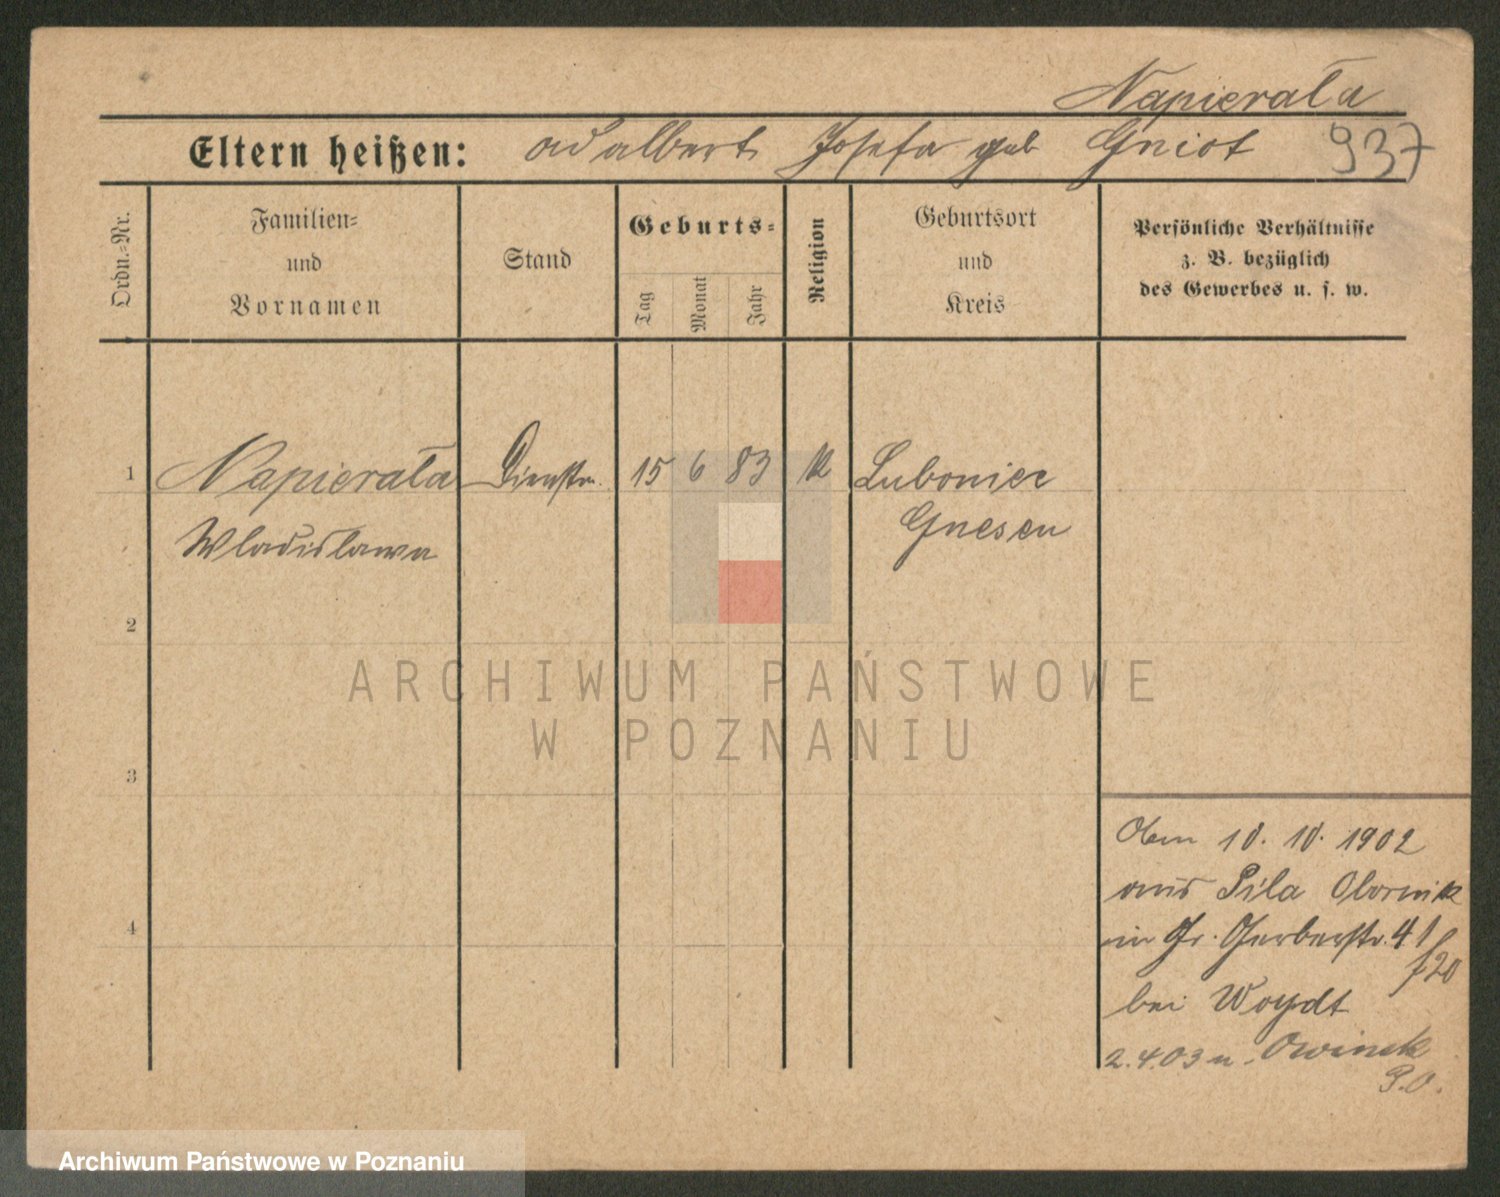 Napierała
Eltern heißen: Adalbert Josefa geb Gniot 937
Ordn.=Nr.
Familien=
und
Vornamen
Stand
Geburts=
Tag
Monat
Jahr
Religion
Geburtsort
und
Kreis
Persönliche Verhältnisse
z. B. bezüglich
des Gewerbes u. s. w.
1 Napierała Dienstm. 15 6 83 k Lubomiec
Wladislawa Gnesen
2
3
4
10. 10. 1902
aus Pila Obornik
in Gr. Gerberstr. 41
bei Woydt
2.4.03 n. Owinsk
P.O.
ARCHIWUM PAŃSTWOWE
W POZNANIU
Archiwum Państwowe w Poznaniu